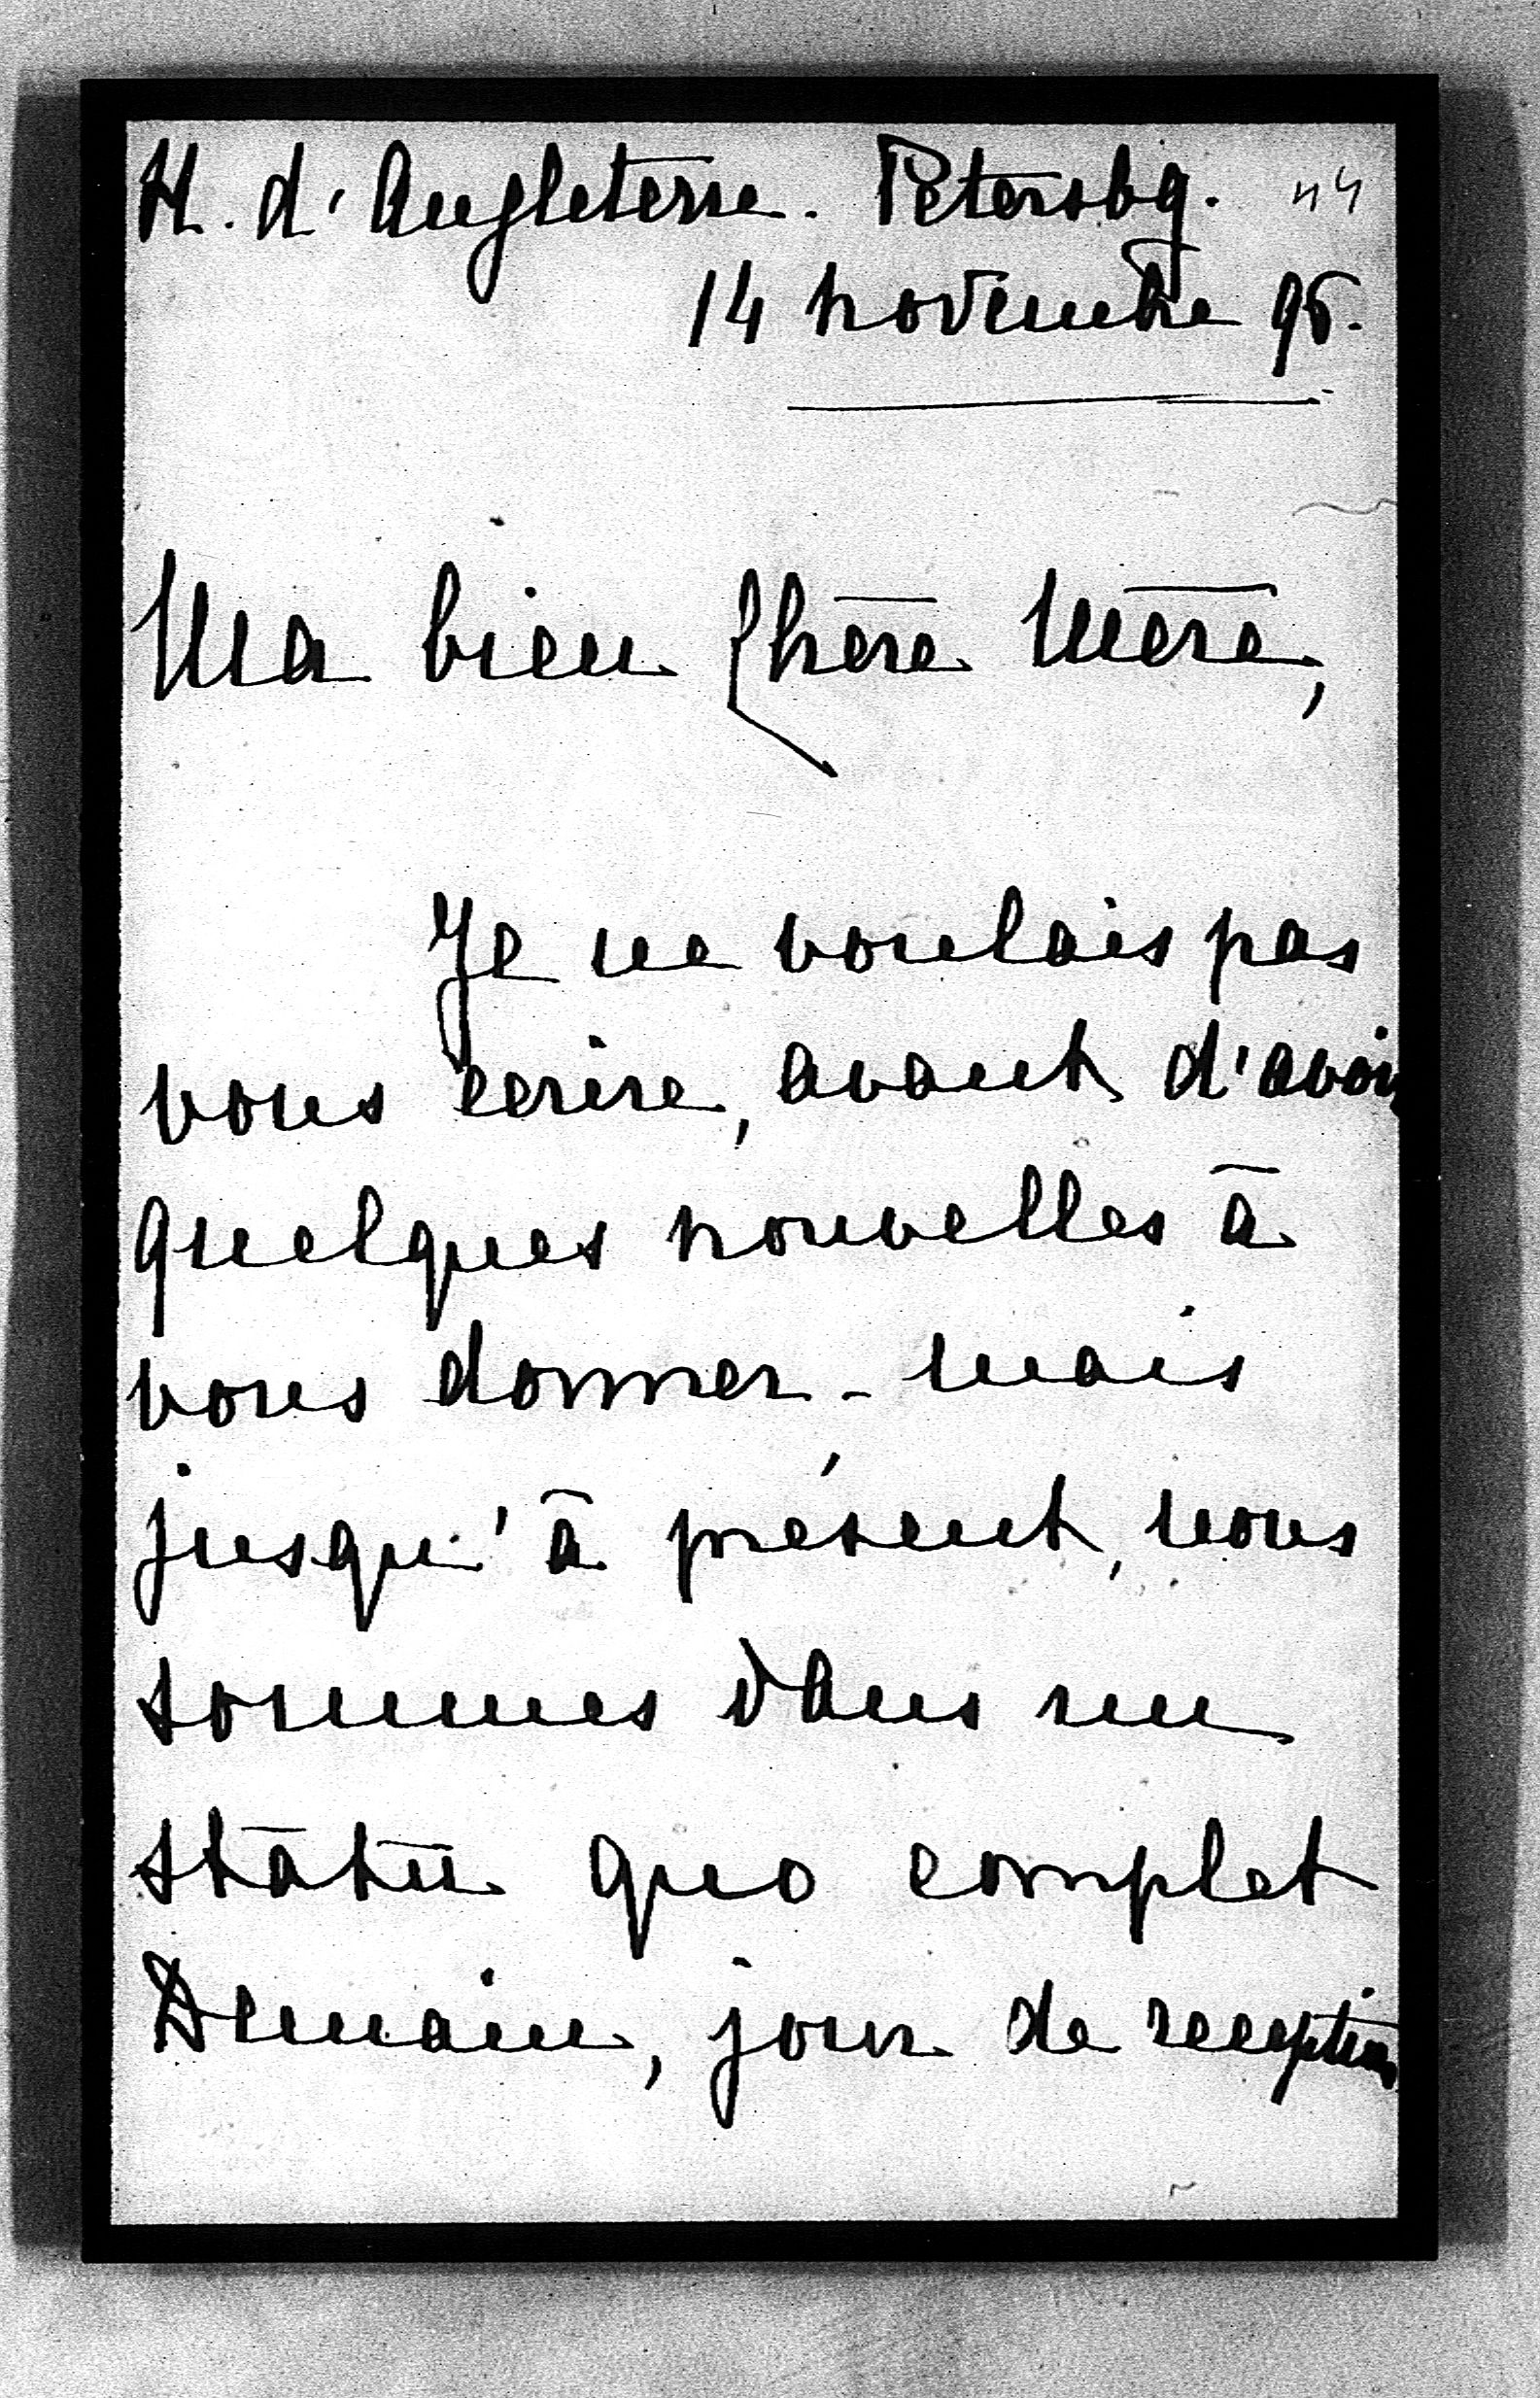 H. d'Angleterre. Pétersbg. 44
14 novembre 96.
Ma bien Chère Mère,
Je ne voulais pas
vous écrire, avant d'avoir
quelques nouvelles à
vous donner - mais
jusqu'à présent, nous
sommes dans un
statu quo complet
Demain, jour de reception